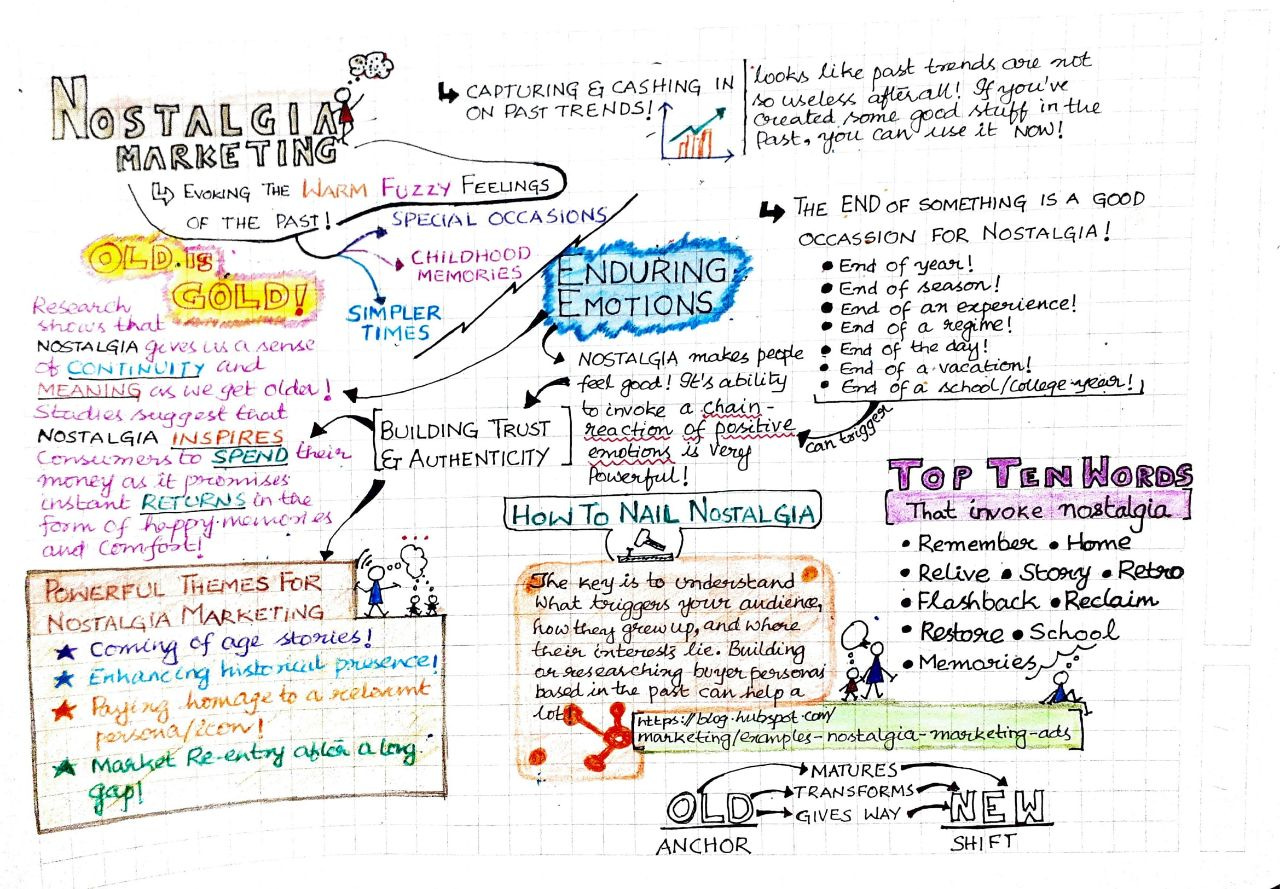 NOSTALGIA
MARKETING
EVOKING THE WARM FUZZY FEELINGS
OF THE PAST!
SPECIAL OCCASIONS
CHILDHOOD
MEMORIES
SIMPLER
TIMES
CAPTURING & CASHING IN
ON PAST TRENDS!
looks like past trends are not
so useless after all! If you've
created some good stuff in the
Past, you can use it NOW!
OLD IS
GOLD!
Research
shows that
NOSTALGIA gives us a sense
of CONTINUITY and
MEANING as we get older!
Studies suggest that
NOSTALGIA INSPIRES
Consumers to SPEND their
money as it promises
instant RETURNS in the
form of happy memories
and Comfort!
ENDURING
EMOTIONS
NOSTALGIA makes people
feel good! It's ability
to invoke a chain-
reaction of positive
emotions is very
Powerful!
BUILDING TRUST
& AUTHENTICITY
THE END OF SOMETHING IS A GOOD
OCCASSION FOR NOSTALGIA!
• End of year!
• End of season!
• End of an experience!
• End of a regime!
• End of the day!
• End of a vacation!
• End of a school/college year!
can trigger
POWERFUL THEMES FOR
NOSTALGIA MARKETING
★ Coming of age stories!
★ Enhancing historical presence!
★ Paying homage to a relevant
persona/icon!
★ Market Re-entry after a long
gap!
HOW TO NAIL NOSTALGIA
The key is to understand
What triggers your audience,
how they grew up, and where
their interests lie. Building
or researching buyer personas
based in the past can help a
lot!
https://blog.hubspot.com/
marketing/examples-nostalgia-marketing-ads
TOP TEN WORDS
That invoke nostalgia
• Remember • Home
• Relive • Story • Retro
• Flashback • Reclaim
• Restore • School
• Memories
OLD
ANCHOR
MATURES
TRANSFORMS
GIVES WAY
NEW
SHIFT